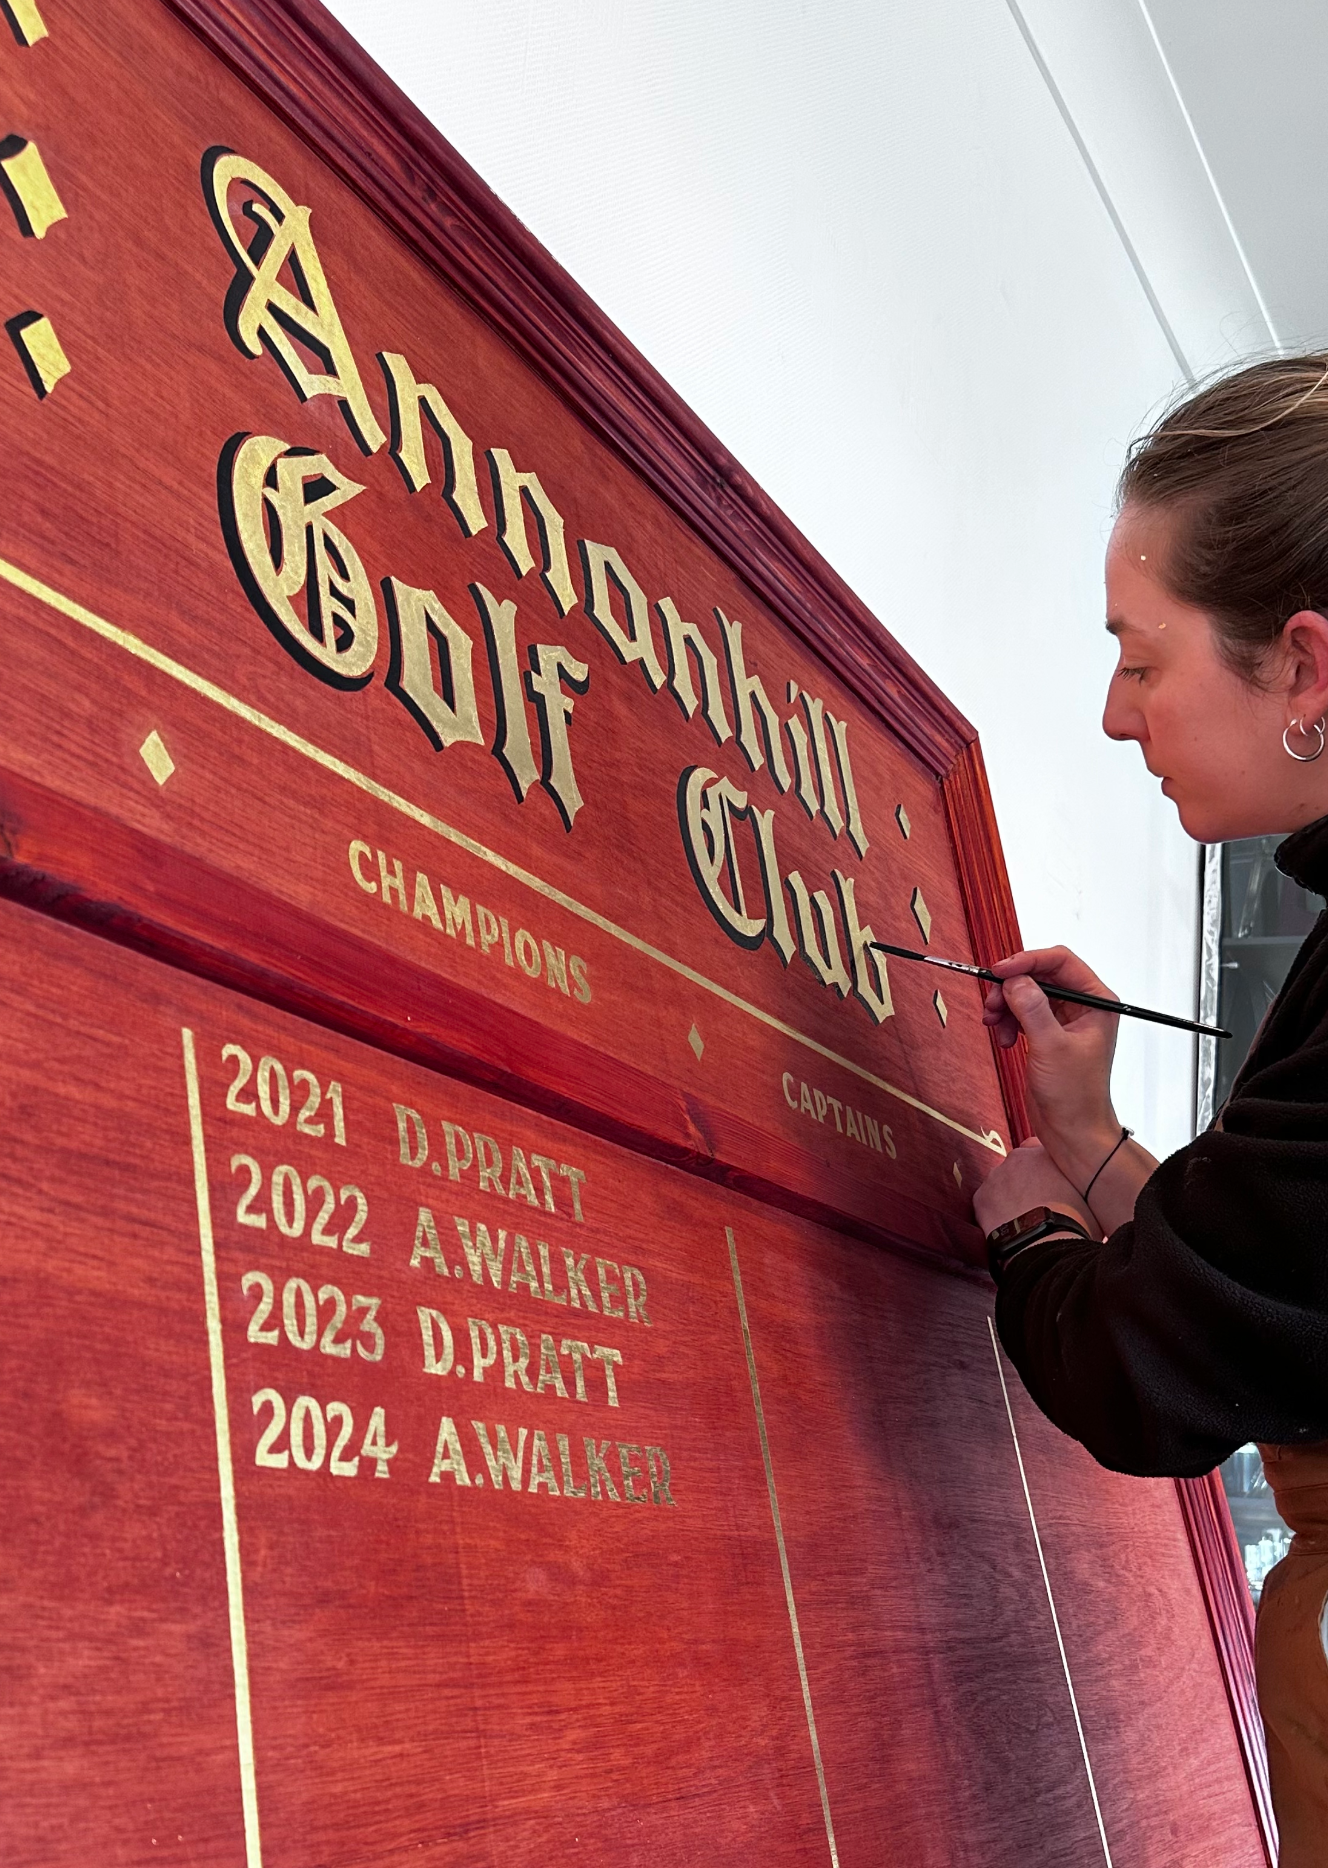 Annanhill
Golf Club
CHAMPIONS
CAPTAINS
2021 D.PRATT
2022 A.WALKER
2023 D.PRATT
2024 A.WALKER